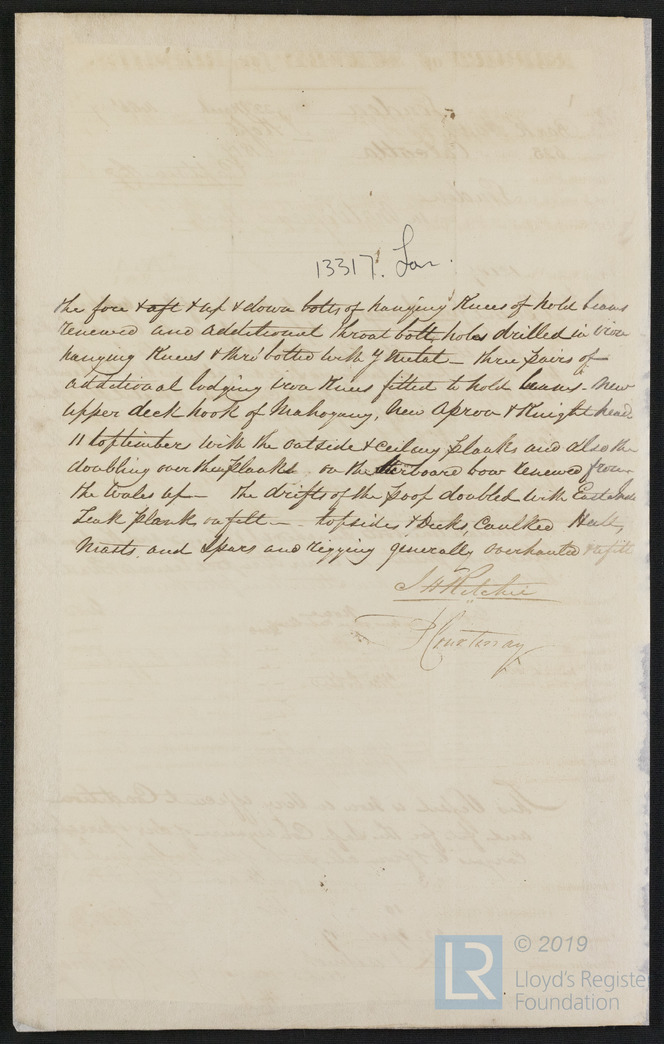 13317. Lon.
the fore & aft & up & down bolts of hanging Knees of hold beams
renewed and additional throat bolt, holes drilled in iron
hanging Knees & thro' bolted with Y Metal — three pairs of
additional lodging iron Knees fitted to hold beams. New
upper deck hook of Mahogany, New Apron & Knight head
11 toptimbers with the outside & ceiling planks and also the
doubling over the planks on the starboard bow renewed from
the Wales up — the drifts of the poop doubled with East India
Teak plank on felt — topsides & Decks, Caulked Hull,
Masts and Spars and rigging generally overhauled & refitd
J H Ritchie
Courtenay
© 2019
LR
Lloyd's Register
Foundation